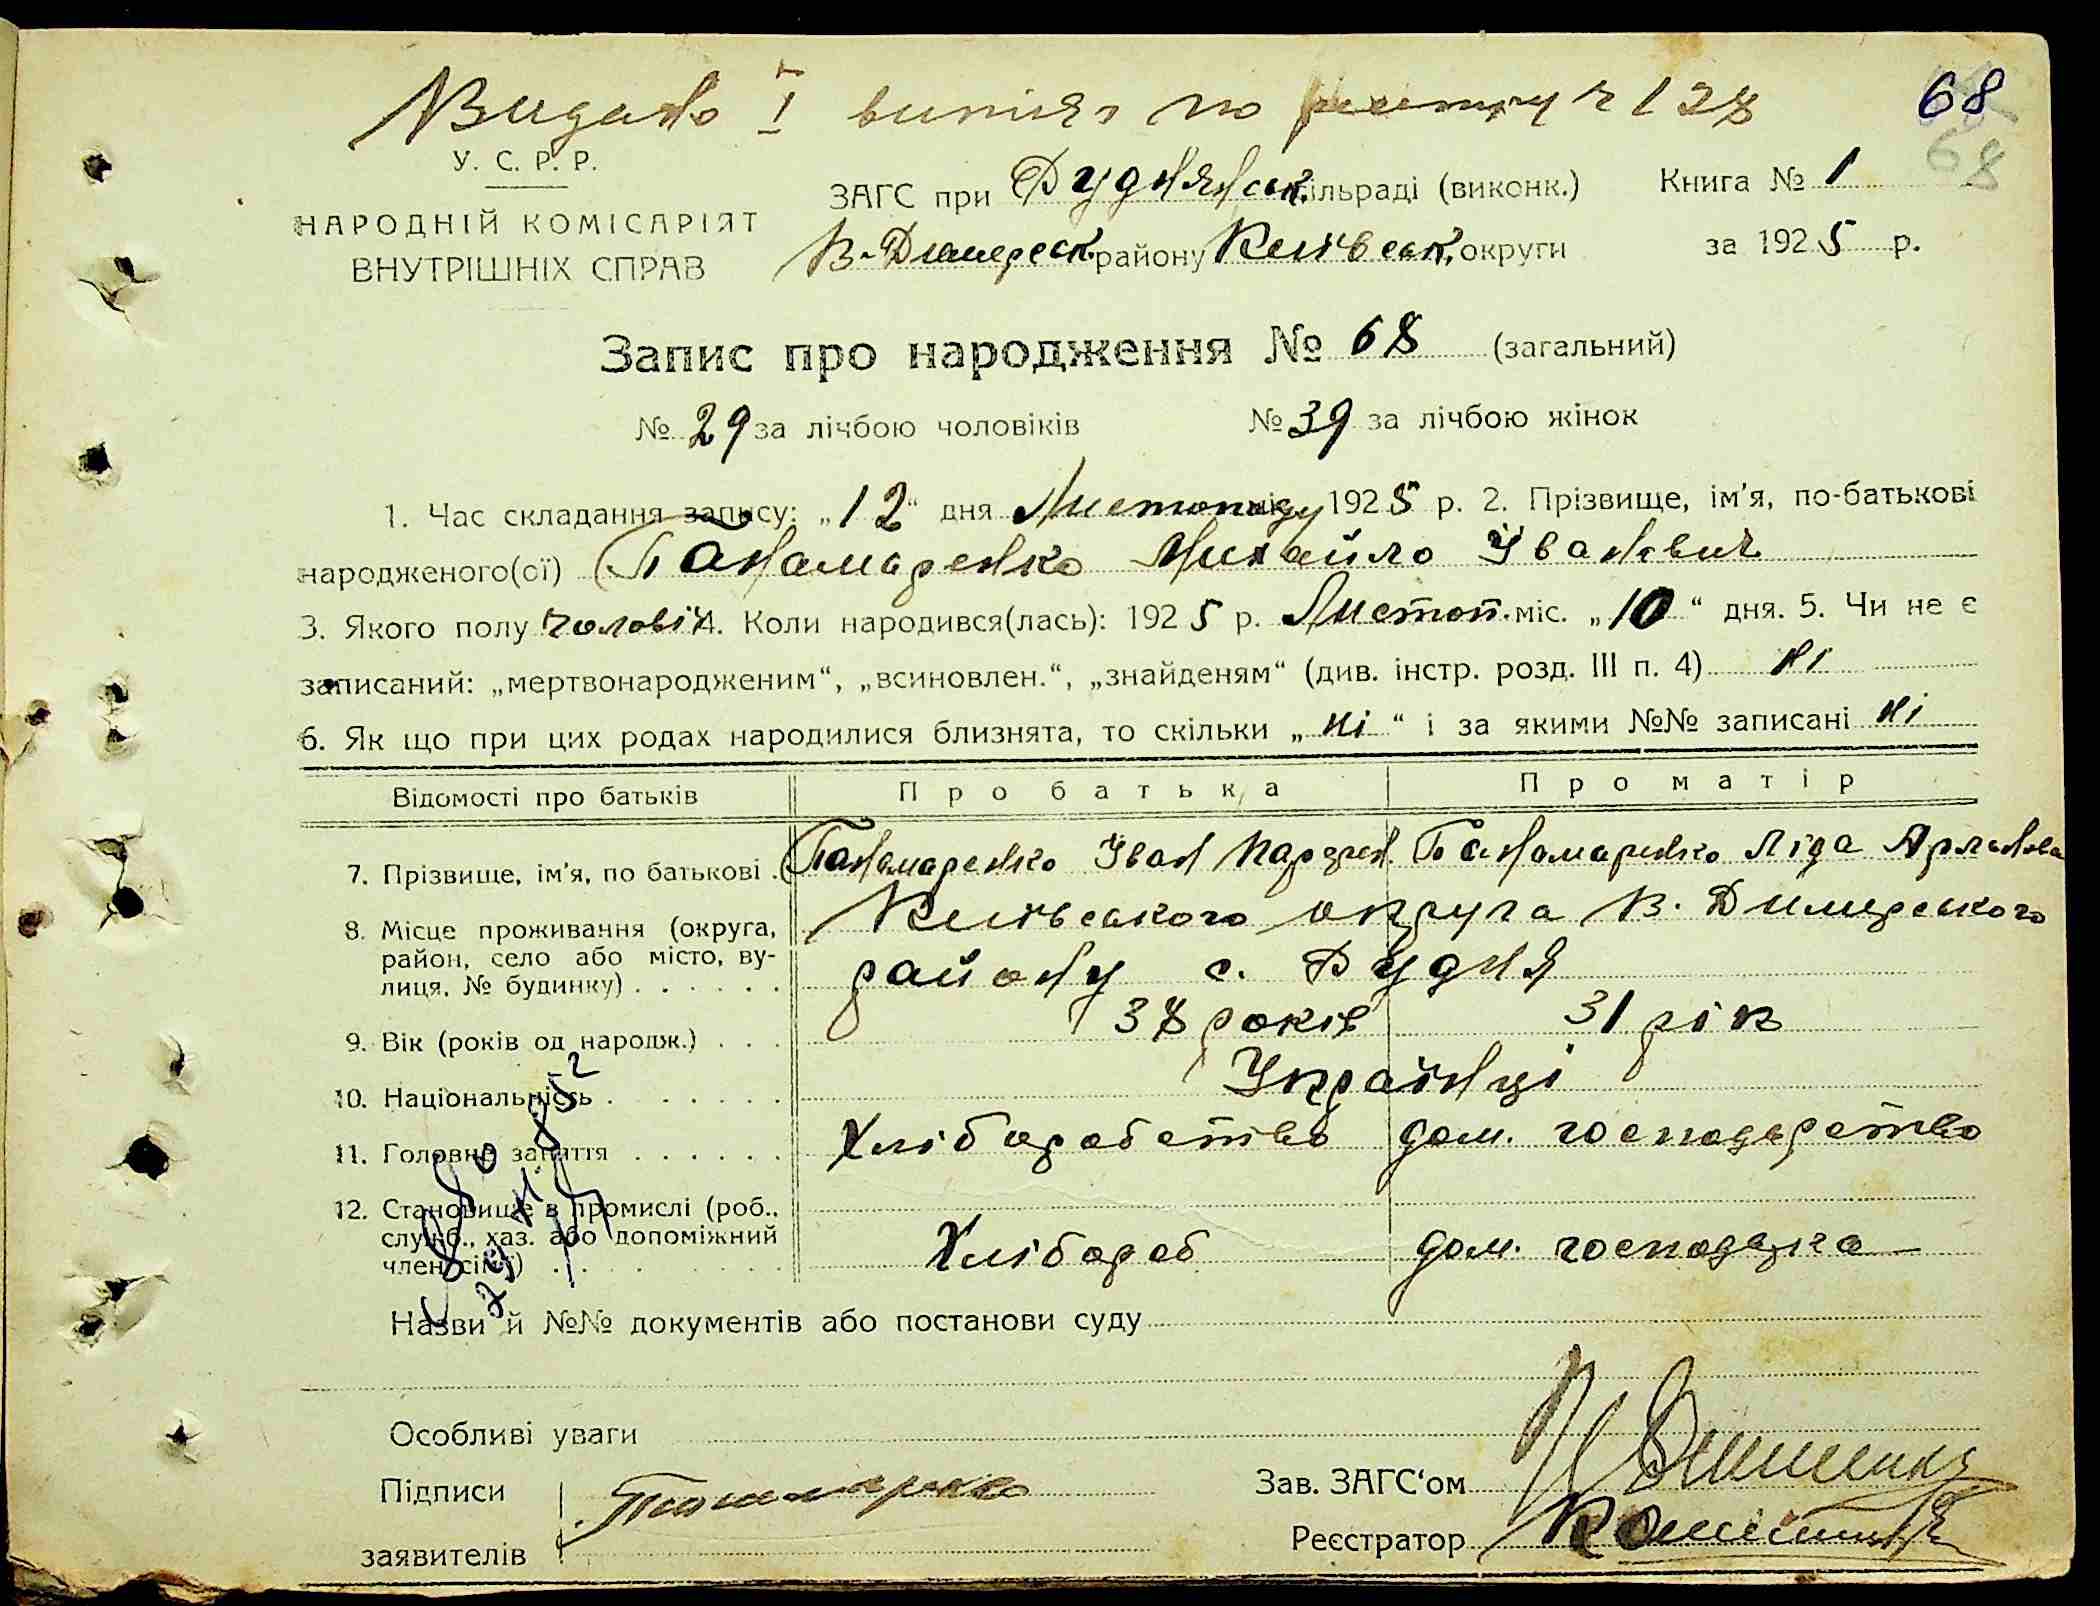 Видано I випис по реєстру № 128
68
68
У. С. Р. Р.
НАРОДНІЙ КОМІСАРІЯТ
ВНУТРІШНІХ СПРАВ
ЗАГС при Дуднянськ. сільраді (виконк.)
В-Димерськ. району Київськ. округи
Книга № 1
за 1925 р.
Запис про народження № 68 (загальний)
№ 29 за лічбою чоловіків № 39 за лічбою жінок
1. Час складання запису: „12“ дня Листопаду 1925 р. 2. Прізвище, ім'я, по-батькові
народженого(ої) Панамаренко Михайло Іванович
3. Якого полу чоловіч 4. Коли народився(лась): 1925 р. Листоп. міс. „10“ дня. 5. Чи не є
записаний: „мертвонародженим“, „всиновлен.“, „знайденям“ (див. інстр. розд. III п. 4) ні
6. Як що при цих родах народилися близнята, то скільки „ні“ і за якими №№ записані ні
Відомості про батьків Про батька Про матір
7. Прізвище, ім'я, по батькові . Панамаренко Іван Панамаренко Ліда
8. Місце проживання (округа, район, село або місто, вулиця, № будинку) . . . . . . Київського округа В. Димерського
району с. Дудня
9. Вік (років од народж.) . . . 38 років 31 рік
10. Національність . . . . . . . Українці
11. Головне заняття . . . . . . Хліборобство дом. господарство
12. Становище в промислі (роб., служб., хаз. або допоміжний член сім'ї) . . . . . . . . Хлібороб дом. господарка
Назви й №№ документів або постанови суду
Особливі уваги
Підписи
заявителів
Зав. ЗАГС'ом
Реєстратор